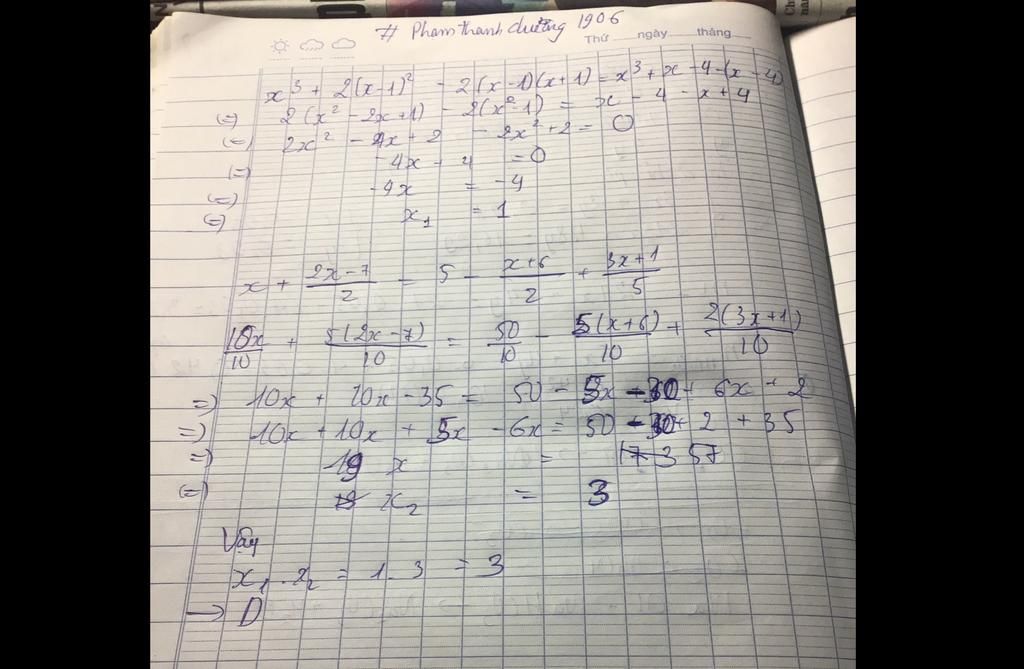 # Phamthanhdương 1906
Thứ ngày tháng
x³ + 2(x-1)² - 2(x-1)(x+1) = x³ + x - 4 - (x - 4)
(=) 2(x² - 2x + 1) - 2(x² - 1) = x - 4 - x + 4
(=) 2x² - 4x + 2 - 2x² + 2 = 0
(=) -4x + 4 = 0
(=) -4x = -4
(=) x₁ = 1
x + (2x-7)/2 = 5 - (x+6)/2 + (3x+1)/5
10x/10 + 5(2x-7)/10 = 50/10 - 5(x+6)/10 + 2(3x+1)/10
=) 10x + 10x - 35 = 50 - 5x - 30 + 6x + 2
=) 10x + 10x + 5x - 6x = 50 - 30 + 2 + 35
=) 19 x = 57
(=) x₂ = 3
Vậy
x₁ . x₂ = 1 . 3 = 3
→ D